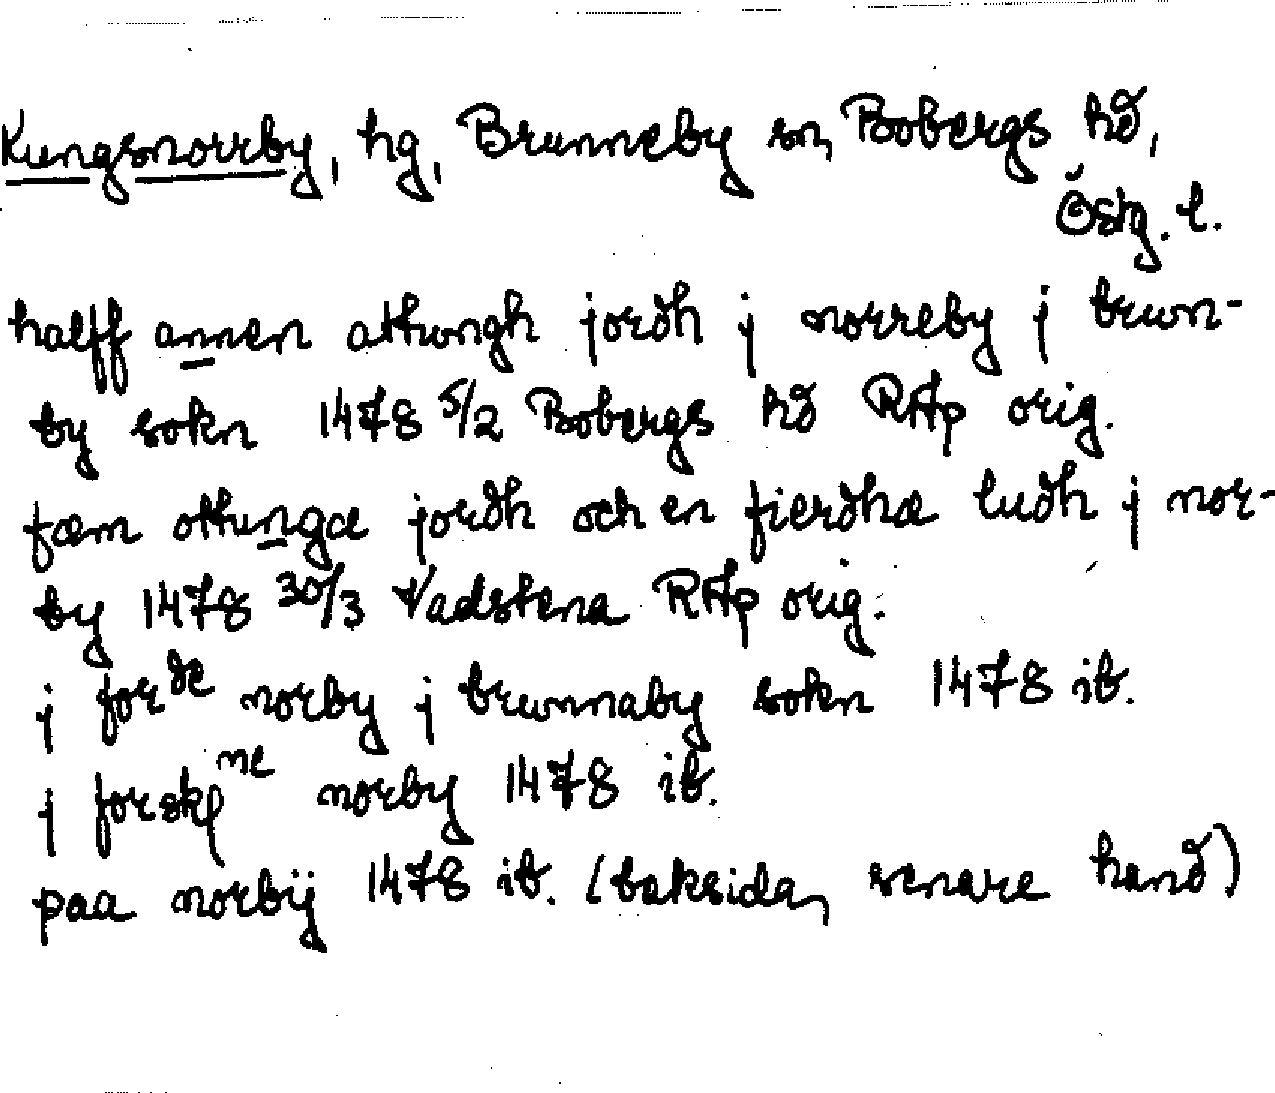 Kungsnorrby, hg, Brunneby sn, Bobergs hd,
Östg. l.
halff annen athungh jordh j norreby j brwn-
by sokn 1478 5/2 Bobergs hd RAp orig.
fæm otthunga jordh och en fierdhæ ludh j nor-
by 1478 30/3 Vadstena RAp orig.
j forde norby j brwnnaby sokn 1478 ib.
j forskpne norby 1478 ib.
paa norbij 1478 ib. (baksidan, senare hand)